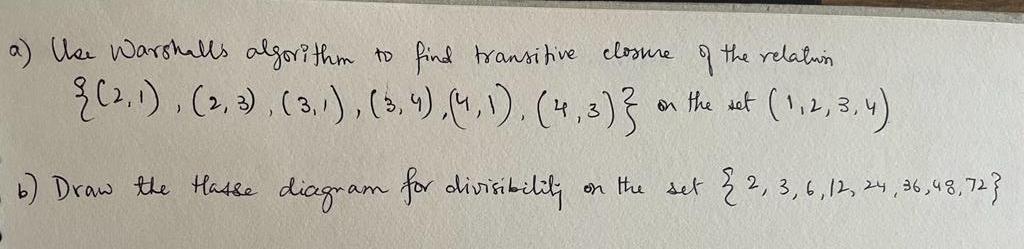 a) Use Warshalls algorithm to find transitive closure of the relation
{(2,1), (2,3), (3,1), (3,4), (4,1), (4,3)} on the set (1,2,3,4)
b) Draw the Hasse diagram for divisibility on the set {2,3,6,12,24,36,48,72}